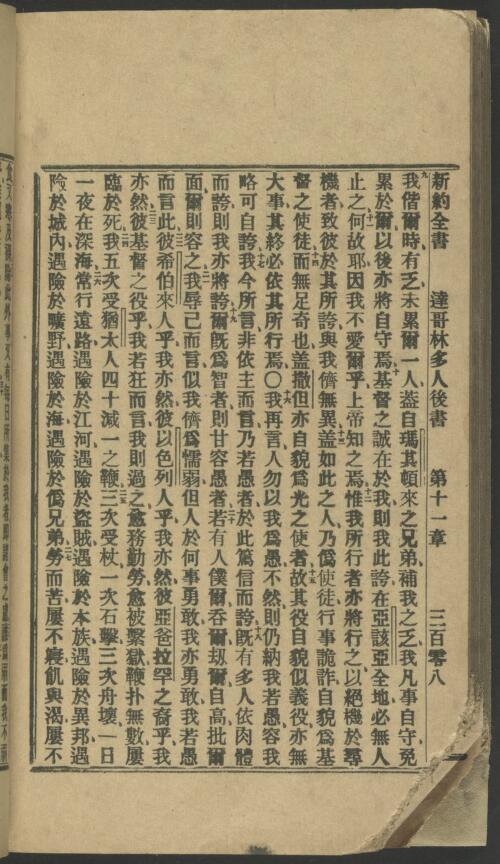 新約全書　達哥林多人後書　第十一章　三百零八
九我偕爾時有乏未累爾一人葢自瑪其頓來之兄弟補我之乏我凡事自守免
累於爾以後亦將自守焉十基督之誠在於我則我此誇在亞該亞全地必無人
止之十一何故耶因我不愛爾乎上帝知之焉十二惟我所行者亦將行之以絕機於尋
機者致彼於其所誇與我儕無異十三蓋如此之人乃僞使徒行事詭詐自貌爲基
督之使徒十四而無足奇也盖撒但亦自貌爲光之使者十五故其役自貌似義役亦無
大事其終必依其所行焉〇十六我再言人勿以我爲愚不然則仍納我若愚容我
略可自誇十七我今所言非依主而言乃若愚者於此篤信而誇十八旣有多人依肉體
而誇則我亦將誇十九爾旣爲智者則甘容愚者二十若有人僕爾吞爾刼爾自高批爾
面爾則容之二一我辱己而言似我儕爲懦弱但人於何事勇敢我亦勇敢我若愚
而言此二二彼希伯來人乎我亦然彼以色列人乎我亦然彼亞爸拉罕之裔乎我
亦然二三彼基督之役乎我若狂而言我則過之愈務勤勞愈被繫獄鞭扑無數屢
臨於死二四我五次受猶太人四十減一之鞭二五三次受杖一次石擊三次舟壞一日
一夜在深海二六常行遠路遇險於江河遇險於盜賊遇險於本族遇險於異邦遇
險於城內遇險於曠野遇險於海遇險於僞兄弟二七勞而苦屢不寢飢與渴屢不